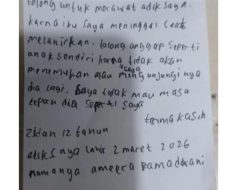 tolong untuk merawat adik saya.
karna ibu saya meninggal saat
melahirkan. tolong anggap seperti
anak sendiri karna tidak akan
saya
menemukan atau mengunjungi nya
dia lagi. saya tidak mau masa
depan dia seperti saya
terima kasih
Zidan 12 tahun
adik saya lahir 2 maret 2026
namanya ameera ramadhani